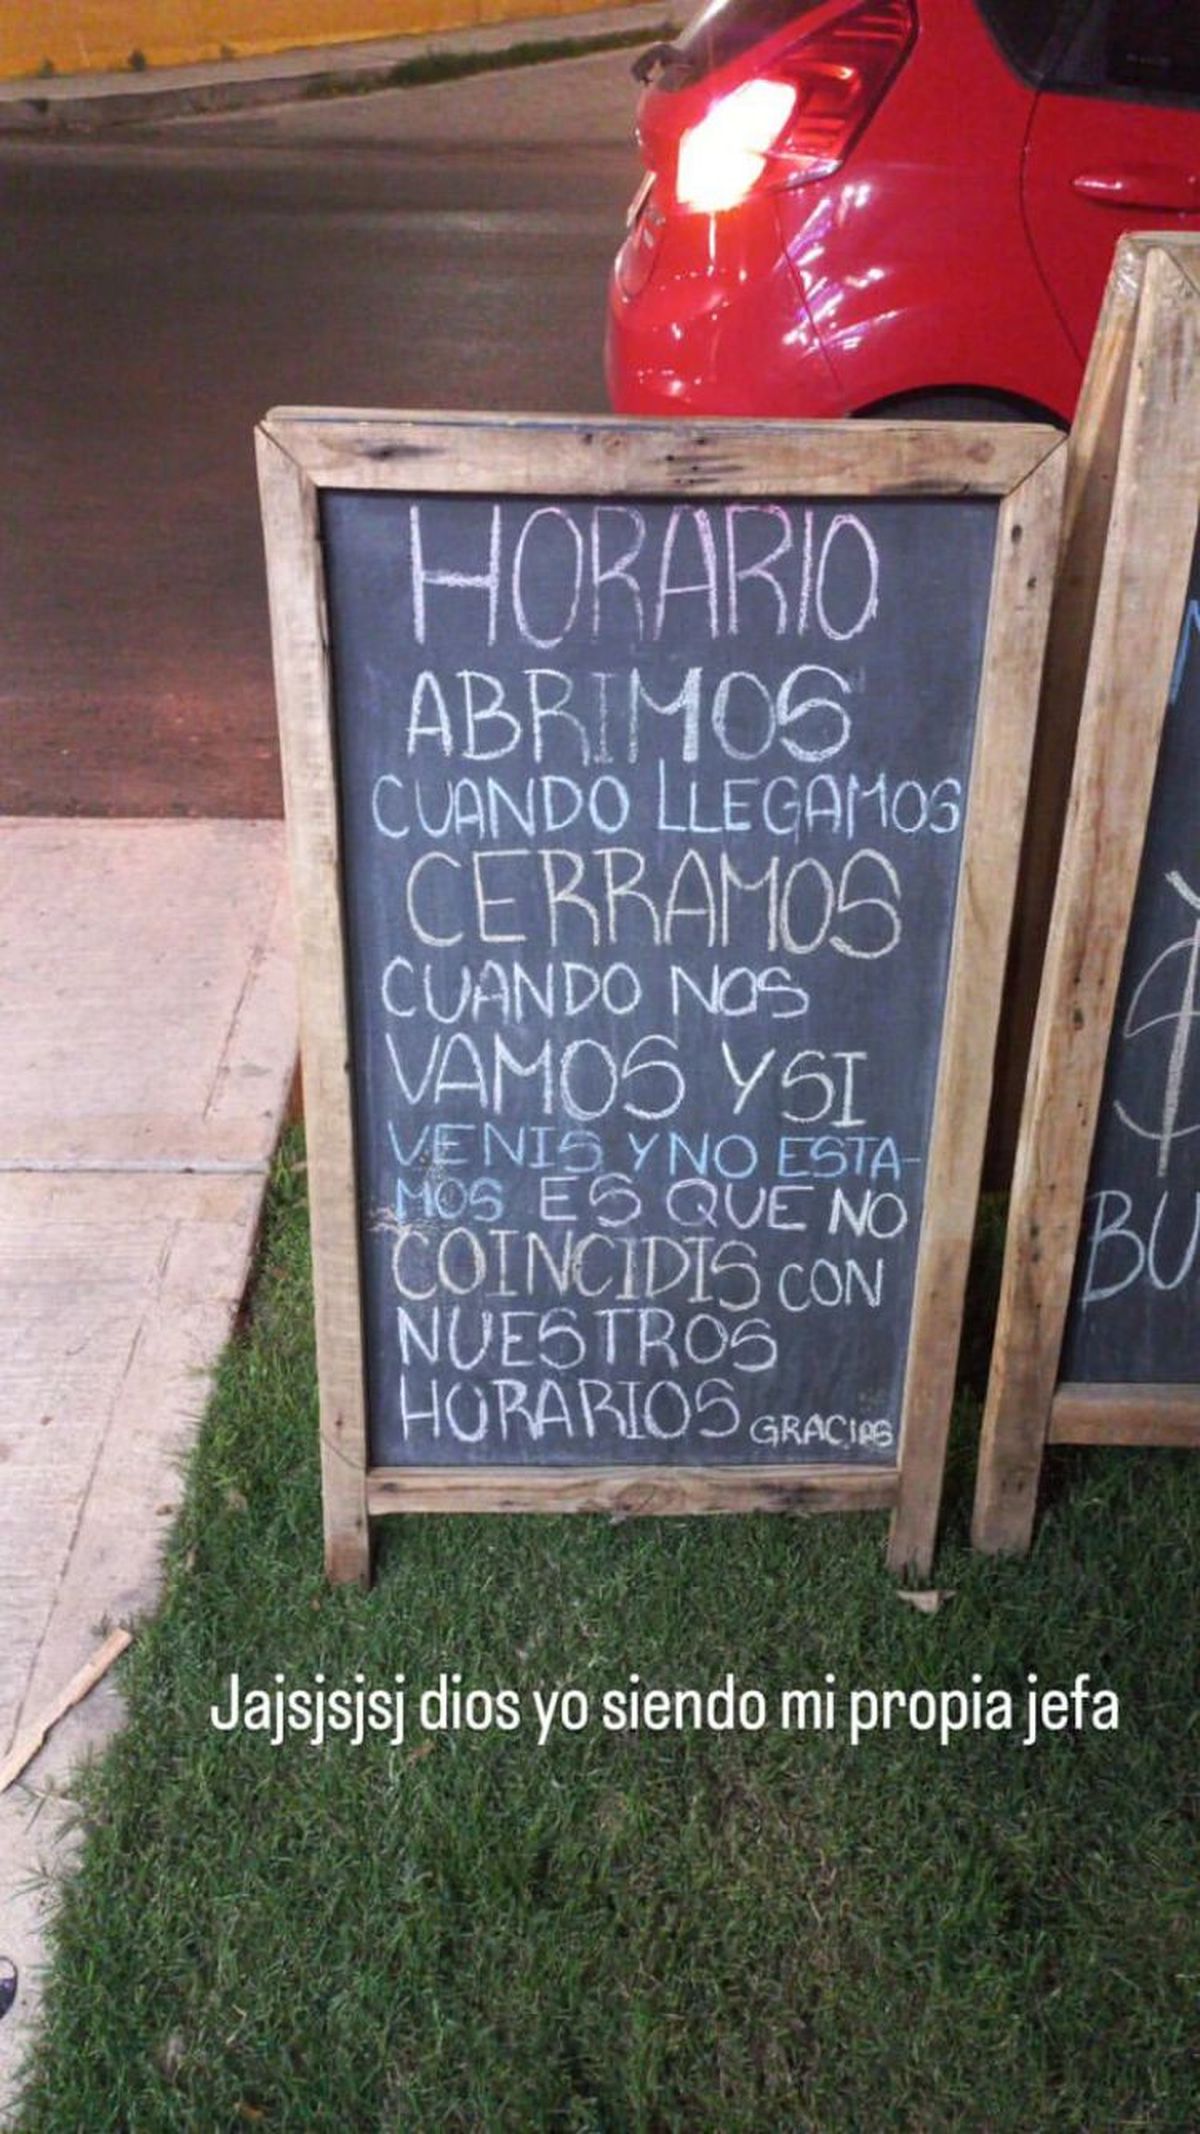 HORARIO
ABRIMOS
CUANDO LLEGAMOS
CERRAMOS
CUANDO NOS
VAMOS Y SI
VENIS Y NO ESTA-
MOS ES QUE NO
COINCIDIS CON
NUESTROS
HORARIOS GRACIAS
BU
Jajsjsjsj dios yo siendo mi propia jefa